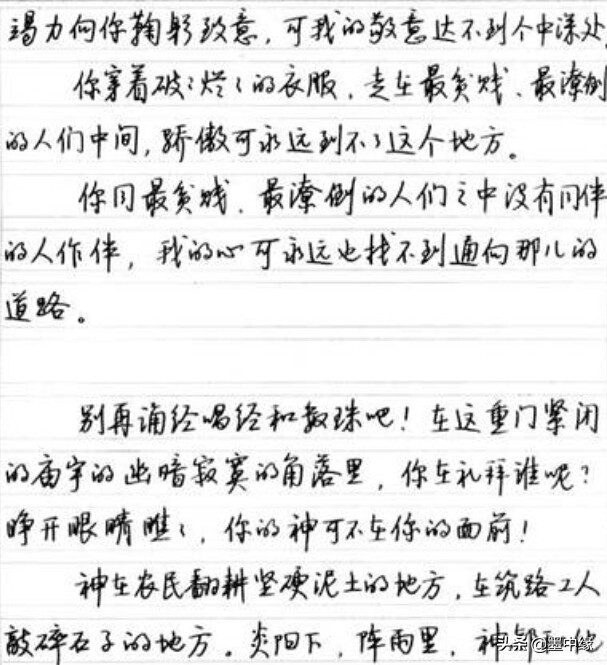 竭力向你鞠躬致意,可我的敬意达不到个中深处
你穿着破破烂烂的衣服,走在最贫贱、最潦倒
的人们中间,骄傲可永远到不了这个地方。
你同最贫贱、最潦倒的人们之中没有同伴
的人作伴,我的心可永远也找不到通向那儿的
道路。
别再诵经唱经和数珠吧!在这重门紧闭
的庙宇的幽暗寂寞的角落里,你在礼拜谁呢?
睁开眼睛瞧瞧,你的神可不在你的面前!
神在农民翻耕坚硬泥土的地方,在筑路工人
敲碎石子的地方。炎阳下,阵雨里,神都
头条@墨中缘